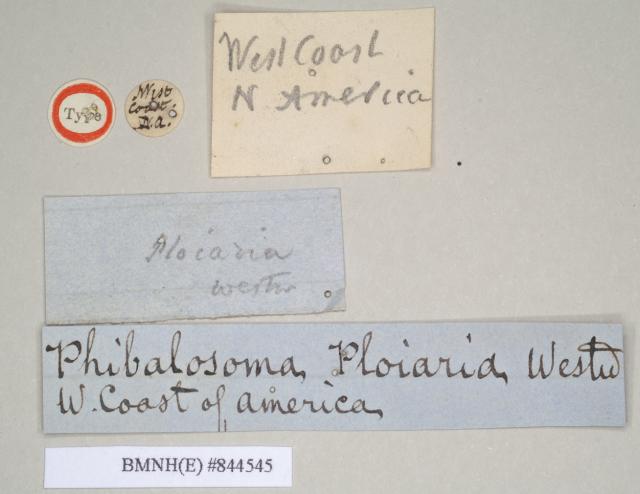 Type
West
Coast.
N.a.
West Coast
N America
Ploiaria
westw
Phibalosoma, Ploiaria, Westw
W. Coast of america,
BMNH(E) #844545